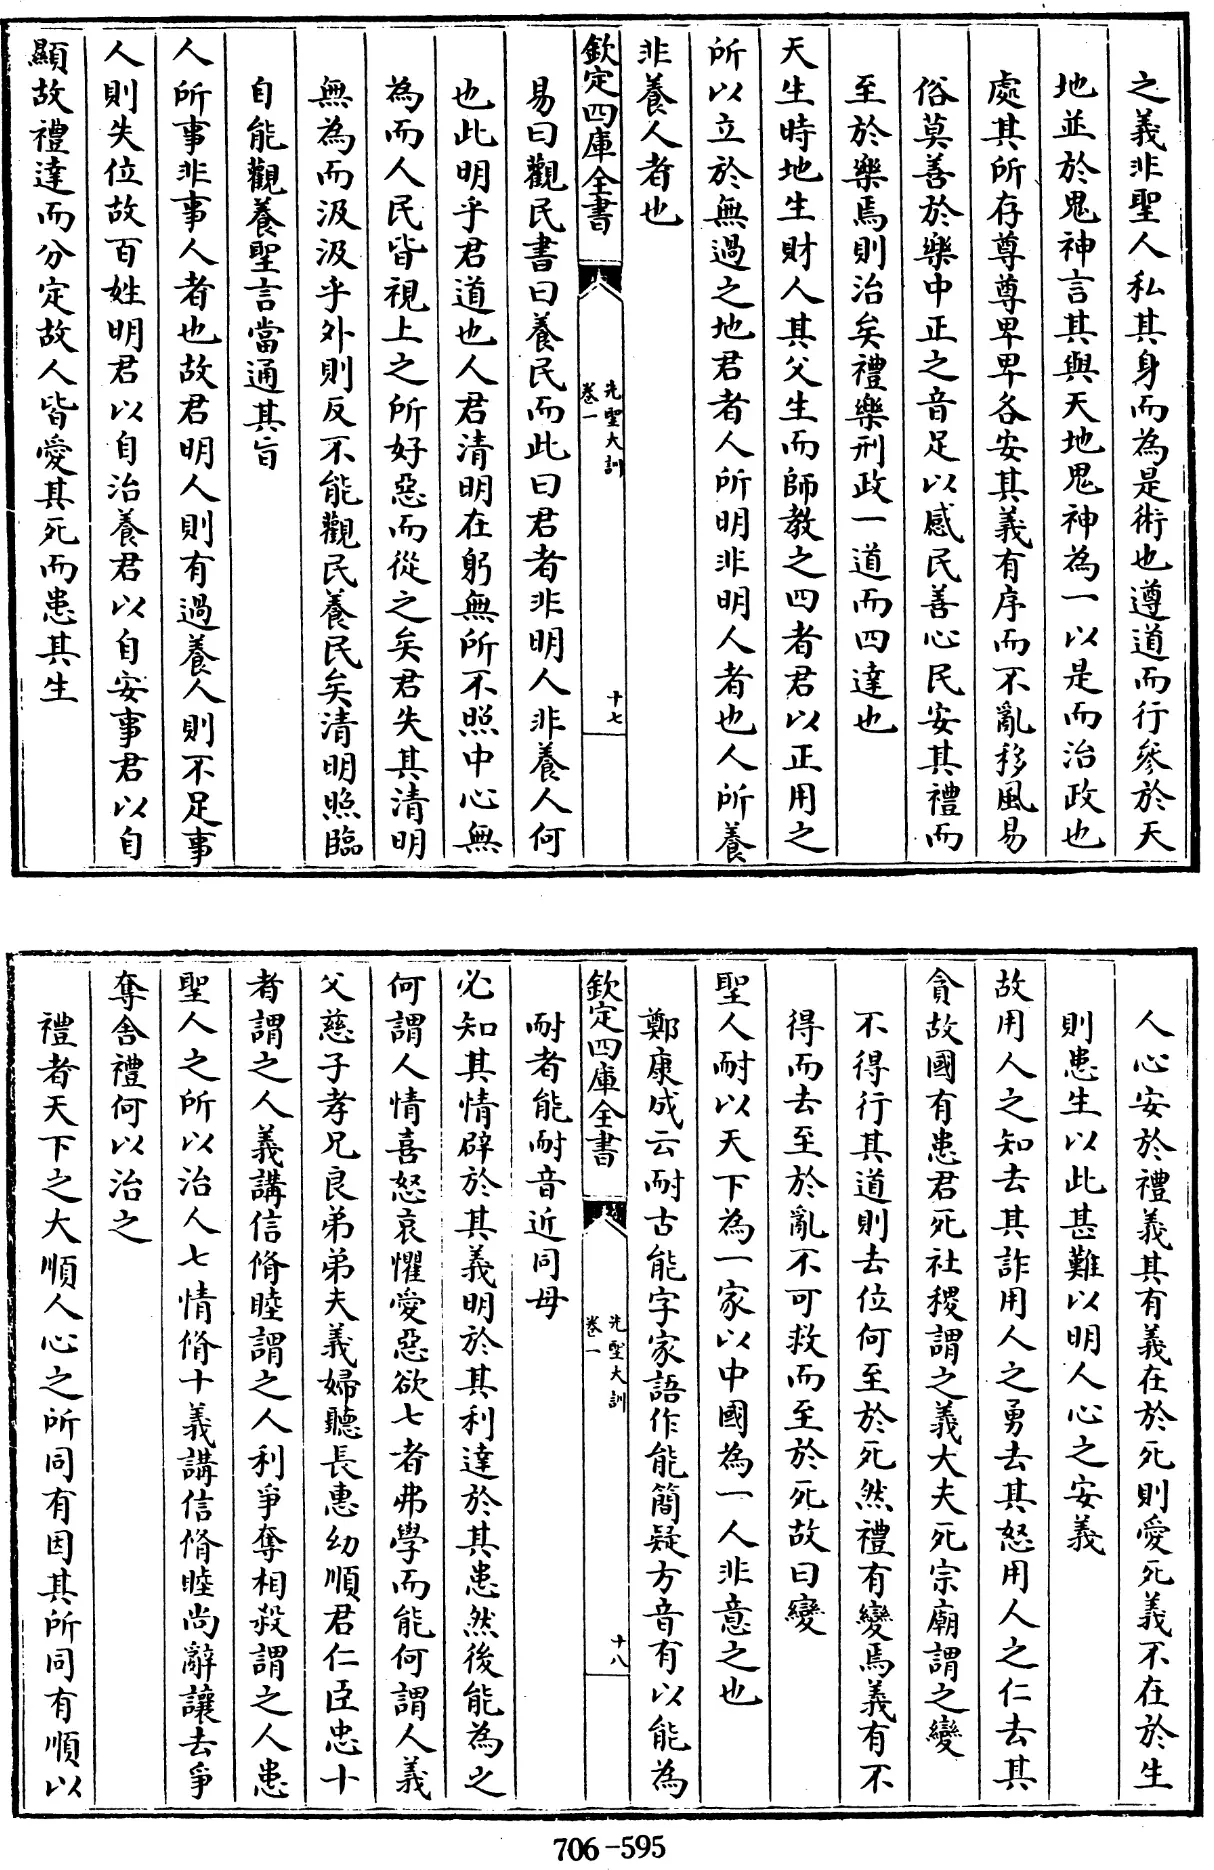 之義非聖人私其身而為是術也遵道而行參於天
地並於鬼神言其與天地鬼神為一以是而治政也
處其所存尊尊卑卑各安其義有序而不亂移風易
俗莫善於樂中正之音足以感民善心民安其禮而
至於樂焉則治矣禮樂刑政一道而四達也
天生時地生財人其父生而師教之四者君以正用之
所以立於無過之地君者人所明非明人者也人所養
非養人者也
欽定四庫全書
先聖大訓
卷一
十七
易曰觀民書曰養民而此曰君者非明人非養人何
也此明乎君道也人君清明在躬無所不照中心無
為而人民皆視上之所好惡而從之矣君失其清明
無為而汲汲乎外則反不能觀民養民矣清明照臨
自能觀養聖言當通其旨
人所事非事人者也故君明人則有過養人則不足事
人則失位故百姓明君以自治養君以自安事君以自
顯故禮達而分定故人皆愛其死而患其生
人心安於禮義其有義在於死則愛死義不在於生
則患生以此甚難以明人心之安義
故用人之知去其詐用人之勇去其怒用人之仁去其
貪故國有患君死社稷謂之義大夫死宗廟謂之變
不得行其道則去位何至於死然禮有變焉義有不
得而去至於亂不可救而至於死故曰變
聖人耐以天下為一家以中國為一人非意之也
鄭康成云耐古能字家語作能簡疑方音有以能為
欽定四庫全書
先聖大訓
卷一
十八
耐者能耐音近同母
必知其情辟於其義明於其利達於其患然後能為之
何謂人情喜怒哀懼愛惡欲七者弗學而能何謂人義
父慈子孝兄良弟弟夫義婦聽長惠幼順君仁臣忠十
者謂之人義講信脩睦謂之人利爭奪相殺謂之人患
聖人之所以治人七情脩十義講信脩睦尚辭讓去爭
奪舍禮何以治之
禮者天下之大順人心之所同有因其所同有順以
706-595